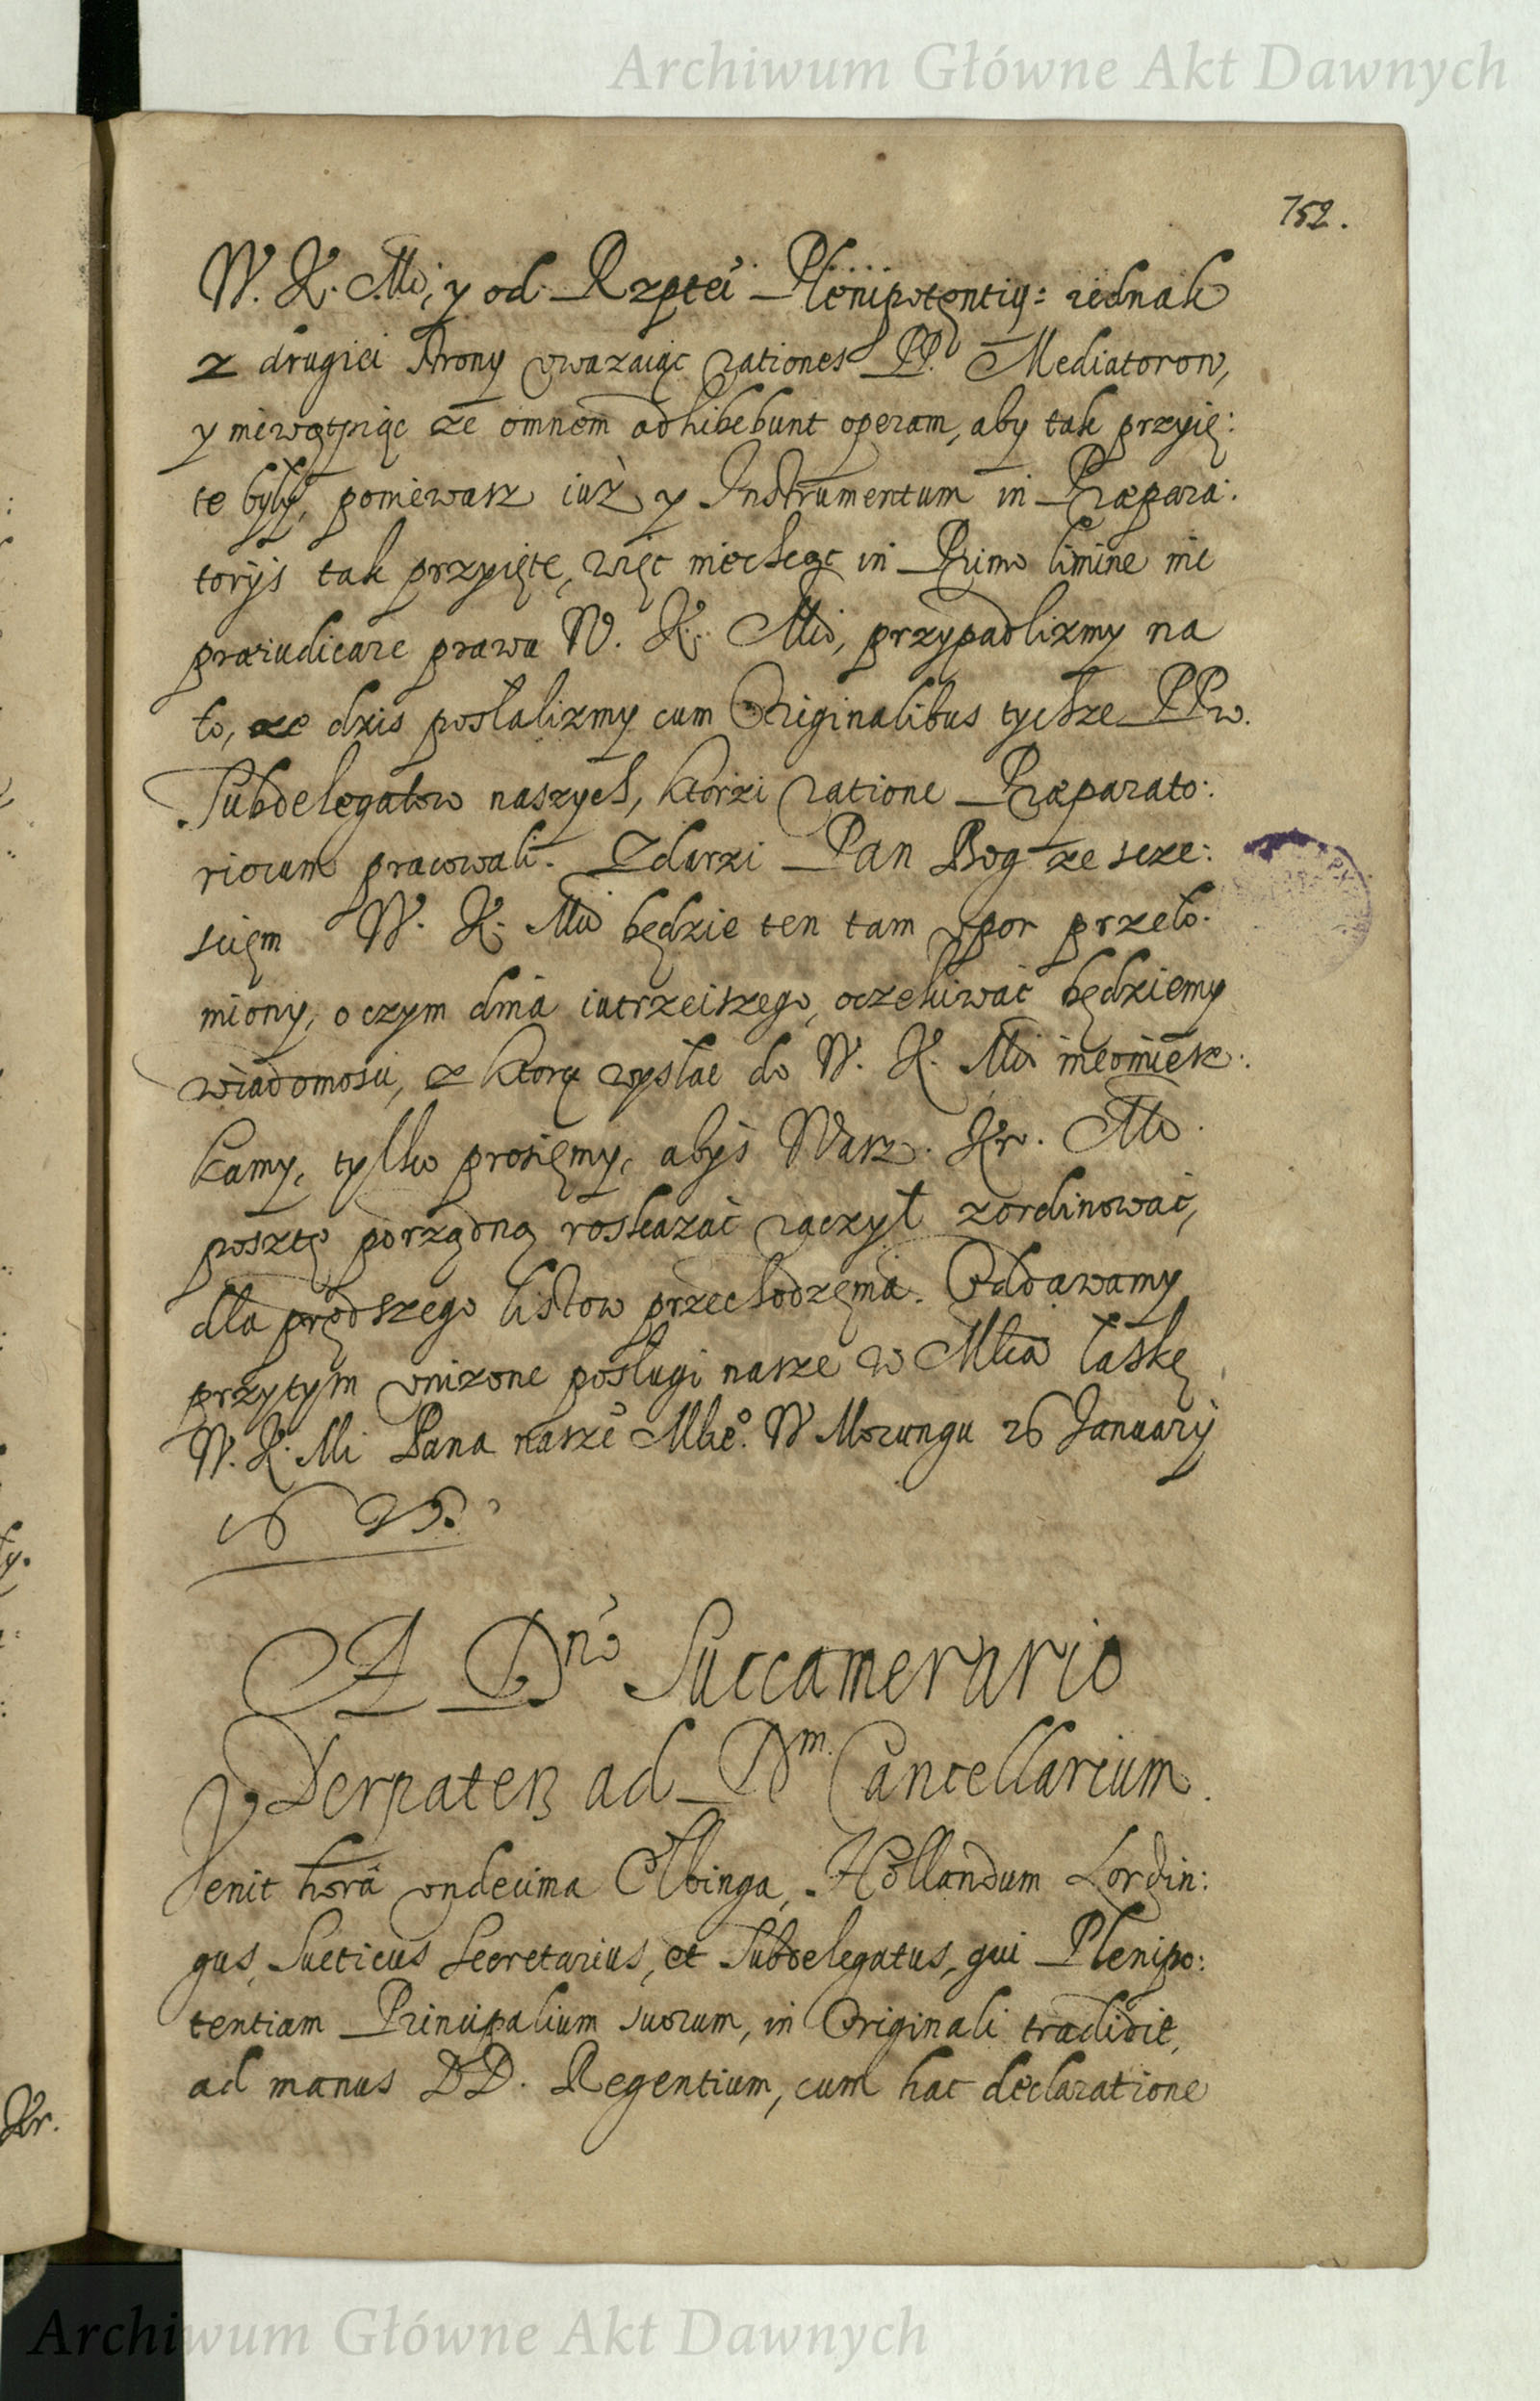 Archiwum Główne Akt Dawnych
752.
W. K. Mći, y od Rzptéi Plenipotentiy: iednak
z drugiei strony vwazaiąc rationes PP. Mediatorow,
y niewątpiąc ze omnem adhibebunt operam, aby tak przyię:
te były, poniewasz iuż y Instrumentum in Præpara:
torijs tak przyięte, więc niechcąc in Primo limine nic
præiudicare prawu W. K. Mći, przypadlizmy na
to, ze dzis posłalizmy cum Originalibus tychze PPw.
Subdelegatow naszych, ktorzi ratione Præparato:
riorum pracowali. Zdarzi Pan Bog ze scze:
scięm W. K. Mći będzie ten tam vpor przeło:
miony, o czym dnia iutrzeiszego, oczekiwać będziemy
wiadomosci, z ktorą wysłac do W. K. Mći nieomiesz:
kamy, tylko prosięmy, abyś Wasz. Kr. Mć
posztę porządną roskazać raczył zordinować,
dla prędszego listow przechodzęnia. Oddawamy
przytym vnizone posługi nasze w Młćia łaskę
W. K. Mi Pana nasze° Młże°. W Morungu 26 January
1635.
A Dno Succamerario
Derpateñ ad Dm. Cancellarium.
Venit hora vndecima Elbinga, Hollandum Lordin:
gus, Sueticus Secretarius, et Subdelegatus, qui Plenipo:
tentiam Principalium suorum, in Originali tradidit,
ad manus DD. Regentium, cum hac declaratione
Kr.
Archiwum Główne Akt Dawnych